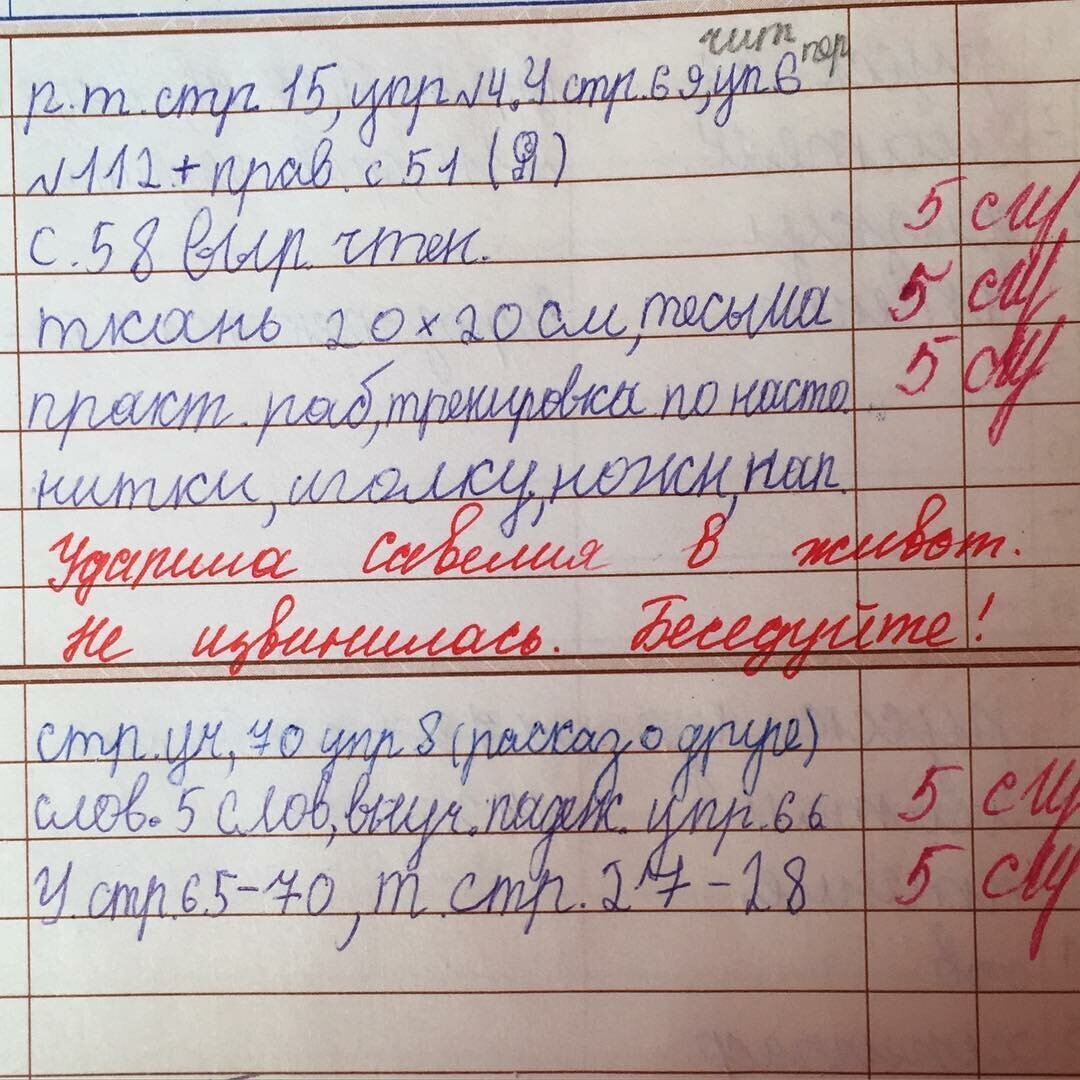 чит пер
р.т.стр. 15, упр №4. У стр.69, уп.6
№112 + прав. с 51 (Я)
с. 58 выр. чтен. 5
ткань 20×20 см, тесьма 5
практ. раб, тренировка по насто. 5
нитки, иголку, ножн, нап.
Ударила Савелия в живот.
Не извинилась. Беседуйте!
стр. уч, 70 упр 8 (расказ о друге)
слов. 5 слов, выуч. падеж. упр. 66 5
У. стр. 65-70, т. стр. 27-28 5